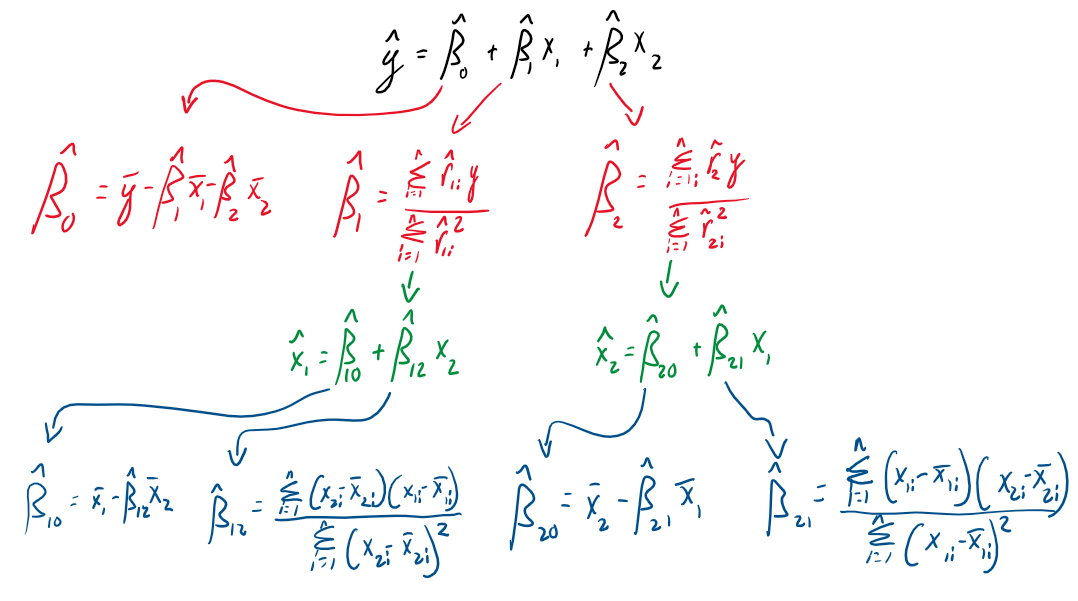 ŷ = β̂₀ + β̂₁x₁ + β̂₂x₂
β̂₀ = ȳ - β̂₁x̄₁ - β̂₂x̄₂
β̂₁ = Σⁿᵢ₌₁ r̂₁ᵢ y / Σⁿᵢ₌₁ r̂₁ᵢ²
β̂₂ = Σⁿᵢ₌₁ r̃₂ y / Σⁿᵢ₌₁ r̃₂ᵢ²
x̂₁ = β̂₁₀ + β̂₁₂ x₂
x̂₂ = β̂₂₀ + β̂₂₁ x₁
β̂₁₀ = x̄₁ - β̂₁₂ x̄₂
β̂₁₂ = Σⁿᵢ₌₁ (x₂ᵢ - x̄₂ᵢ)(x₁ᵢ - x̄₁ᵢ) / Σⁿᵢ₌₁ (x₂ᵢ - x̄₂ᵢ)²
β̂₂₀ = x̄₂ - β̂₂₁ x̄₁
β̂₂₁ = Σⁿᵢ₌₁ (x₁ᵢ - x̄₁ᵢ)(x₂ᵢ - x̄₂ᵢ) / Σⁿᵢ₌₁ (x₁ᵢ - x̄₁ᵢ)²